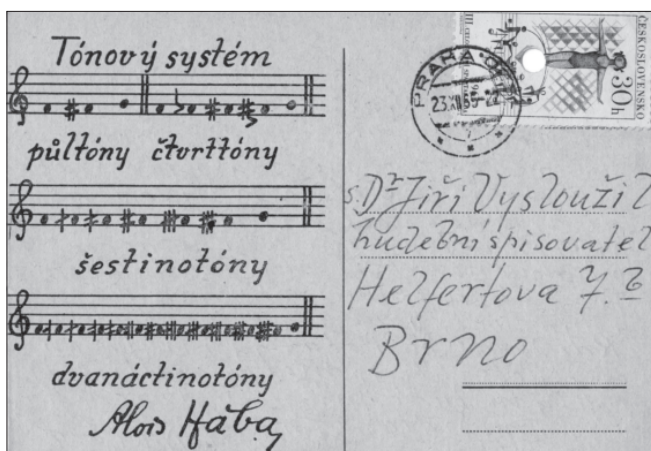 Tónový systém
půltóny čtvrttóny
šestinotóny
dvanáctinotóny
Alois Hába
PRAHA
23.XII.65
ČESKOSLOVENSKO
30h
Dr Jiří Vysloužil
hudební spisovatel
Helfertova 7.
Brno